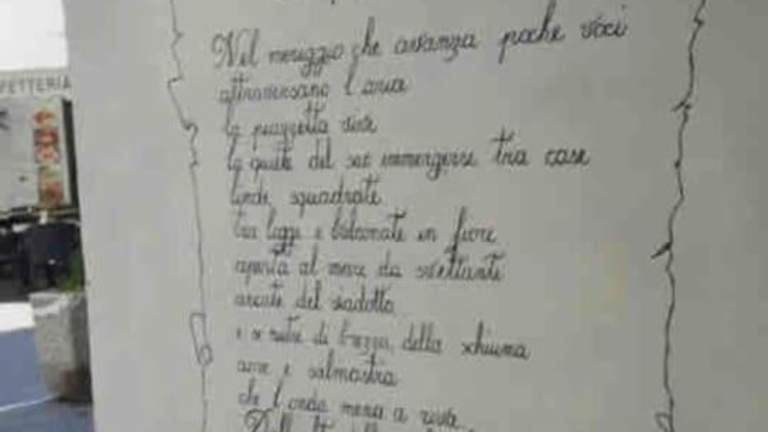 FETTERIA
Nel meriggio che avanza poche voci
attraversano l'aria
la piazzetta vive
la quiete del suo immergersi tra case
linde squadrate
tra logge e balconate in fiore
aperta al mare da svettanti
arcate del viadotto
e si nutre di brezza della schiuma
amre e salmastra
che l'onda mena a riva